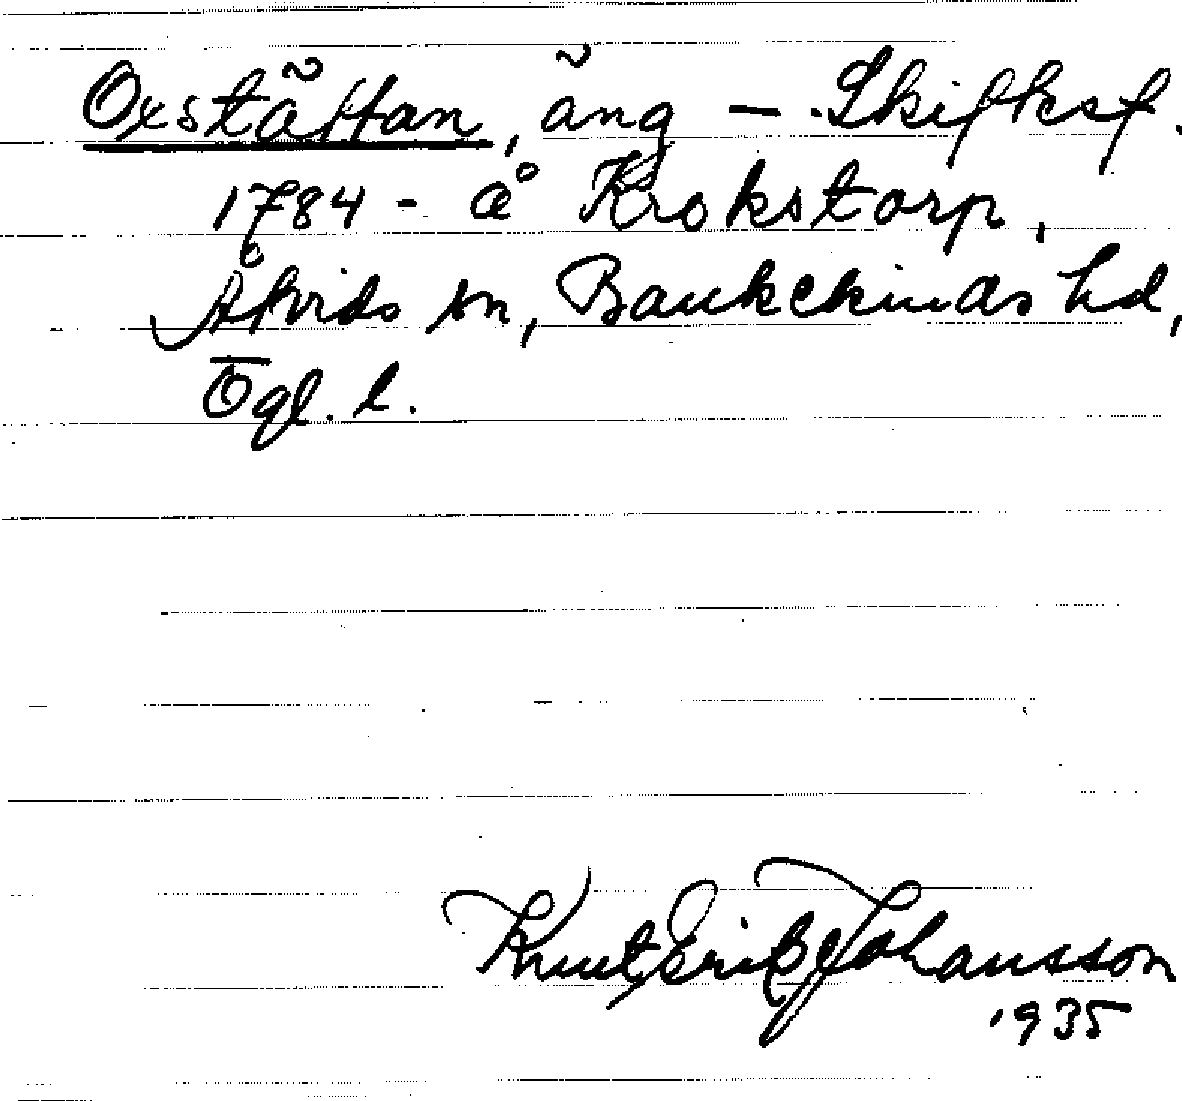 Oxstättan, äng — Skifksf.
1784 - å Krokstorp,
Åtvids sn, Bankekinds hd,
Ögl. l.
Knut Erik Johansson
1935